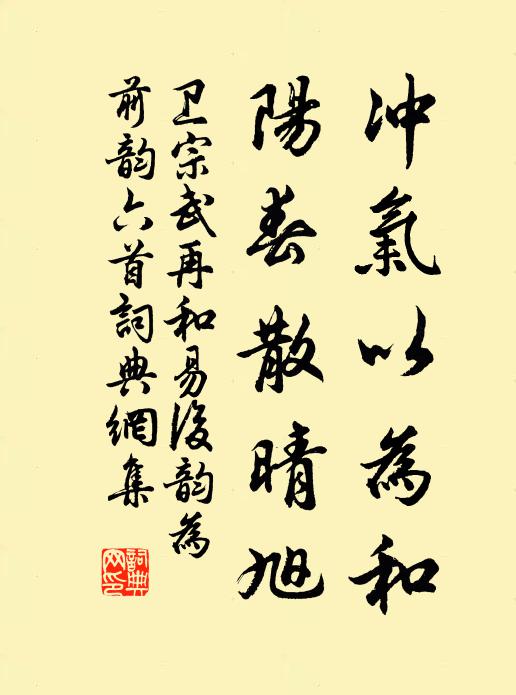 冲氣以為和
陽春散晴旭
卫宗武再和易後韵為
前韵六首詞典網集
詞典
网印